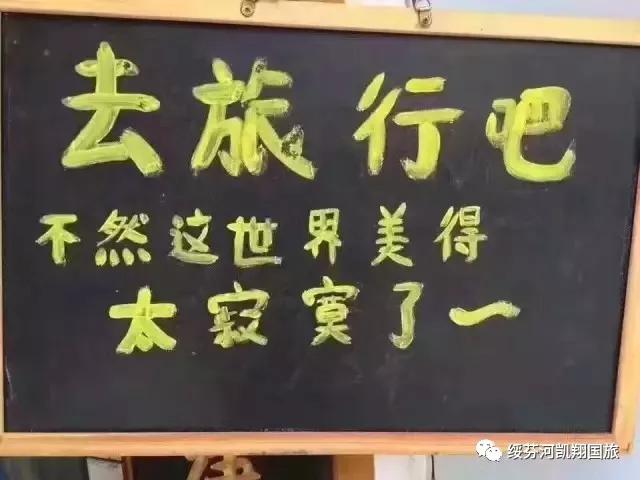 去旅行吧
不然这世界美得
太寂寞了～
绥芬河凯翔国旅